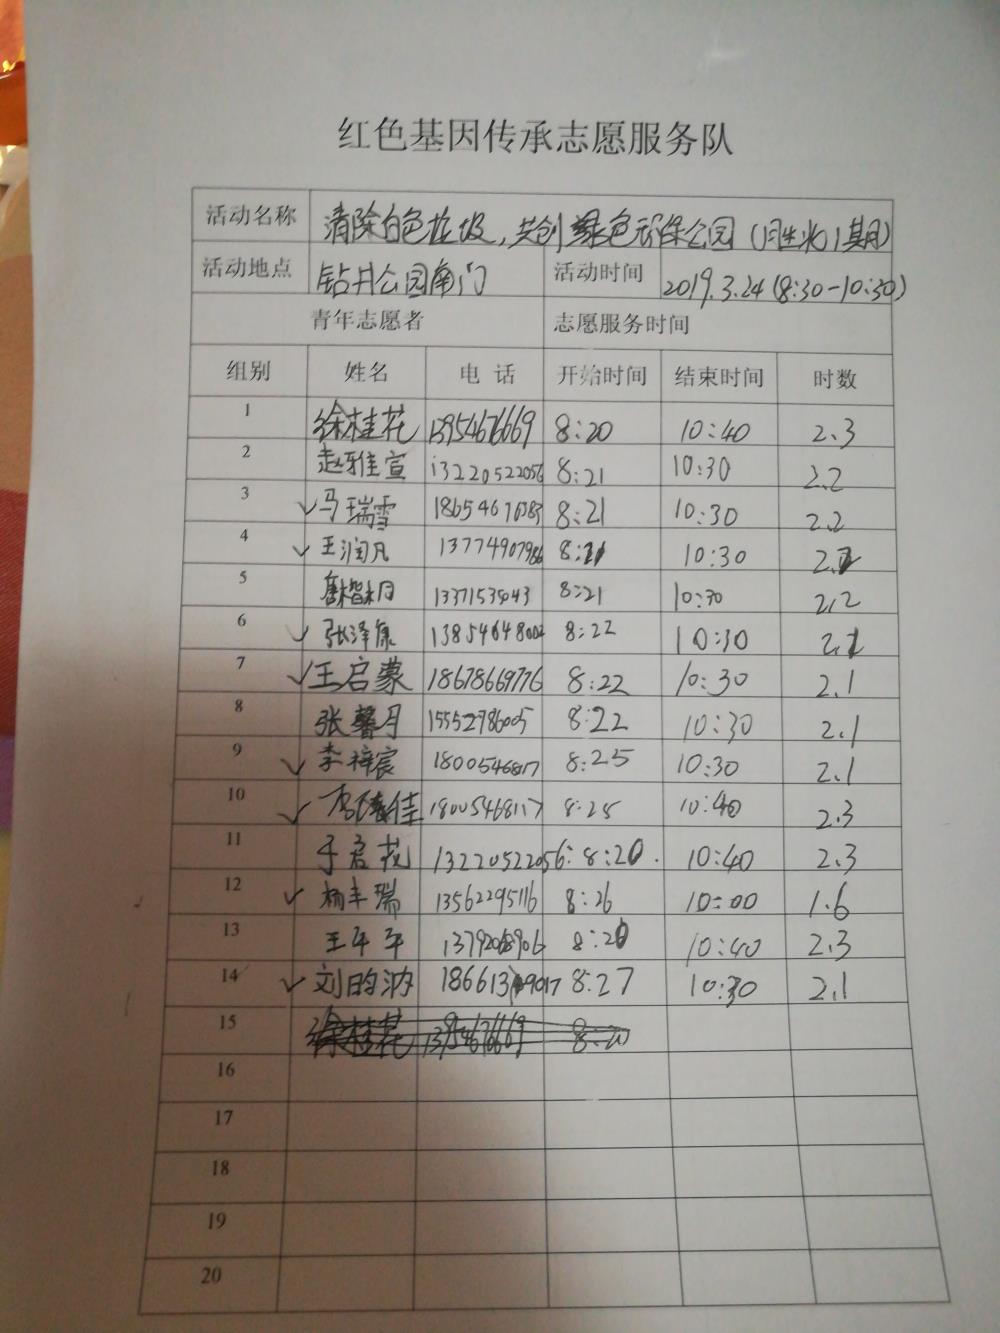 红色基因传承志愿服务队
活动名称 清除白色垃圾,共创绿色环保公园
活动地点 钻井公园南门 活动时间 2019.3.24(8:30-10:30)
青年志愿者 志愿服务时间
组别 姓名 电话 开始时间 结束时间 时数
1 徐桂花 13954676669 8:20 10:40 2.3
2 赵雅宣 13220522056 8:21 10:30 2.2
3 ✓马瑞雪 8:21 10:30 2.2
4 ✓王润凡 10:30
5 8:21 10:30 2.2
6 ✓张泽康 8:22 10:30
7 ✓王启蒙 18678669776 8:22 10:30 2.1
8 张馨月 15552786005 8:22 10:30 2.1
9 ✓李梓宸 8:25 10:30 2.1
10 ✓ 18005468117 8:25 10:40 2.3
11 于启花 13220522056: 8:20. 10:40 2.3
12 ✓杨丰瑞 13562295116 8:26 10:00 1.6
13 王年年 8:20 10:40 2.3
14 ✓ 8:27 10:30 2.1
15 徐桂花 13954676669 8:20
16
17
18
19
20